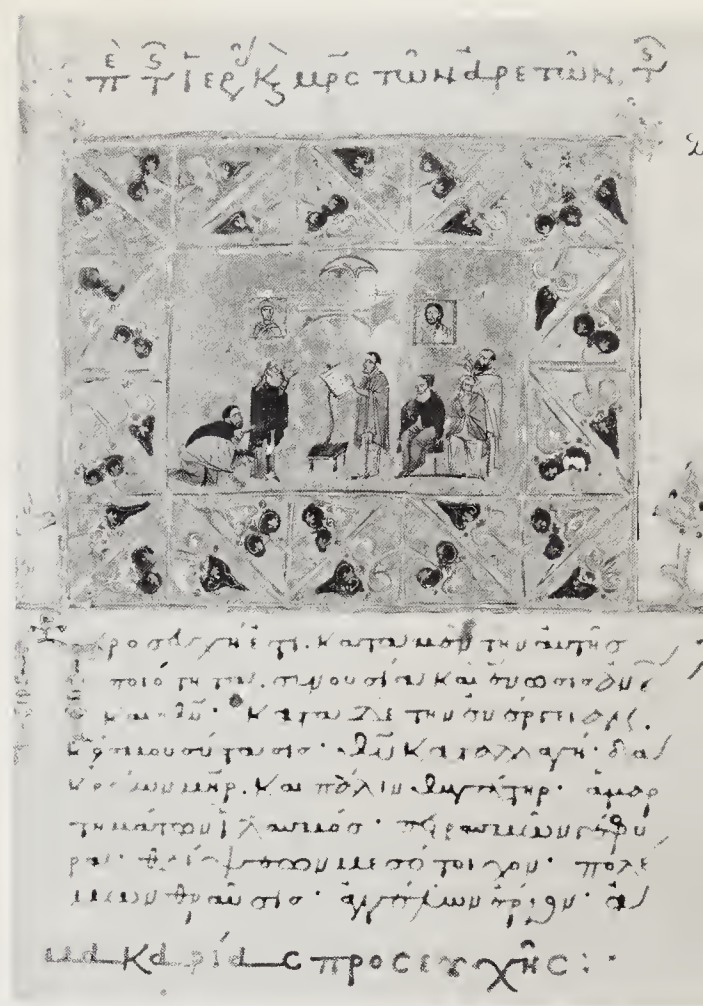 ἐπ τ ἱερ κ μρς τῶν ἀρετῶν, τ
προσευχή ἐστι. κατὰ μὲν τὴν αὐτῆς
ποιότητα. συνουσία καὶ ἕνωσις ἀνου
καὶ θυ· κατὰ δὲ τὴν ἐνέργειαν.
κόσμου σύστασις· θυ καταλλαγή· δα
κρύων μηρ. καὶ πάλιν θυγάτηρ· ἁμαρ
τημάτων ἱλασμός· πειρασμῶν γέφυ
ρα· θλίψεων μεσότοιχον· πολέ
μων θραῦσις· ἀγγέλων ἔργον·
μακαρίας προσευχῆς:·